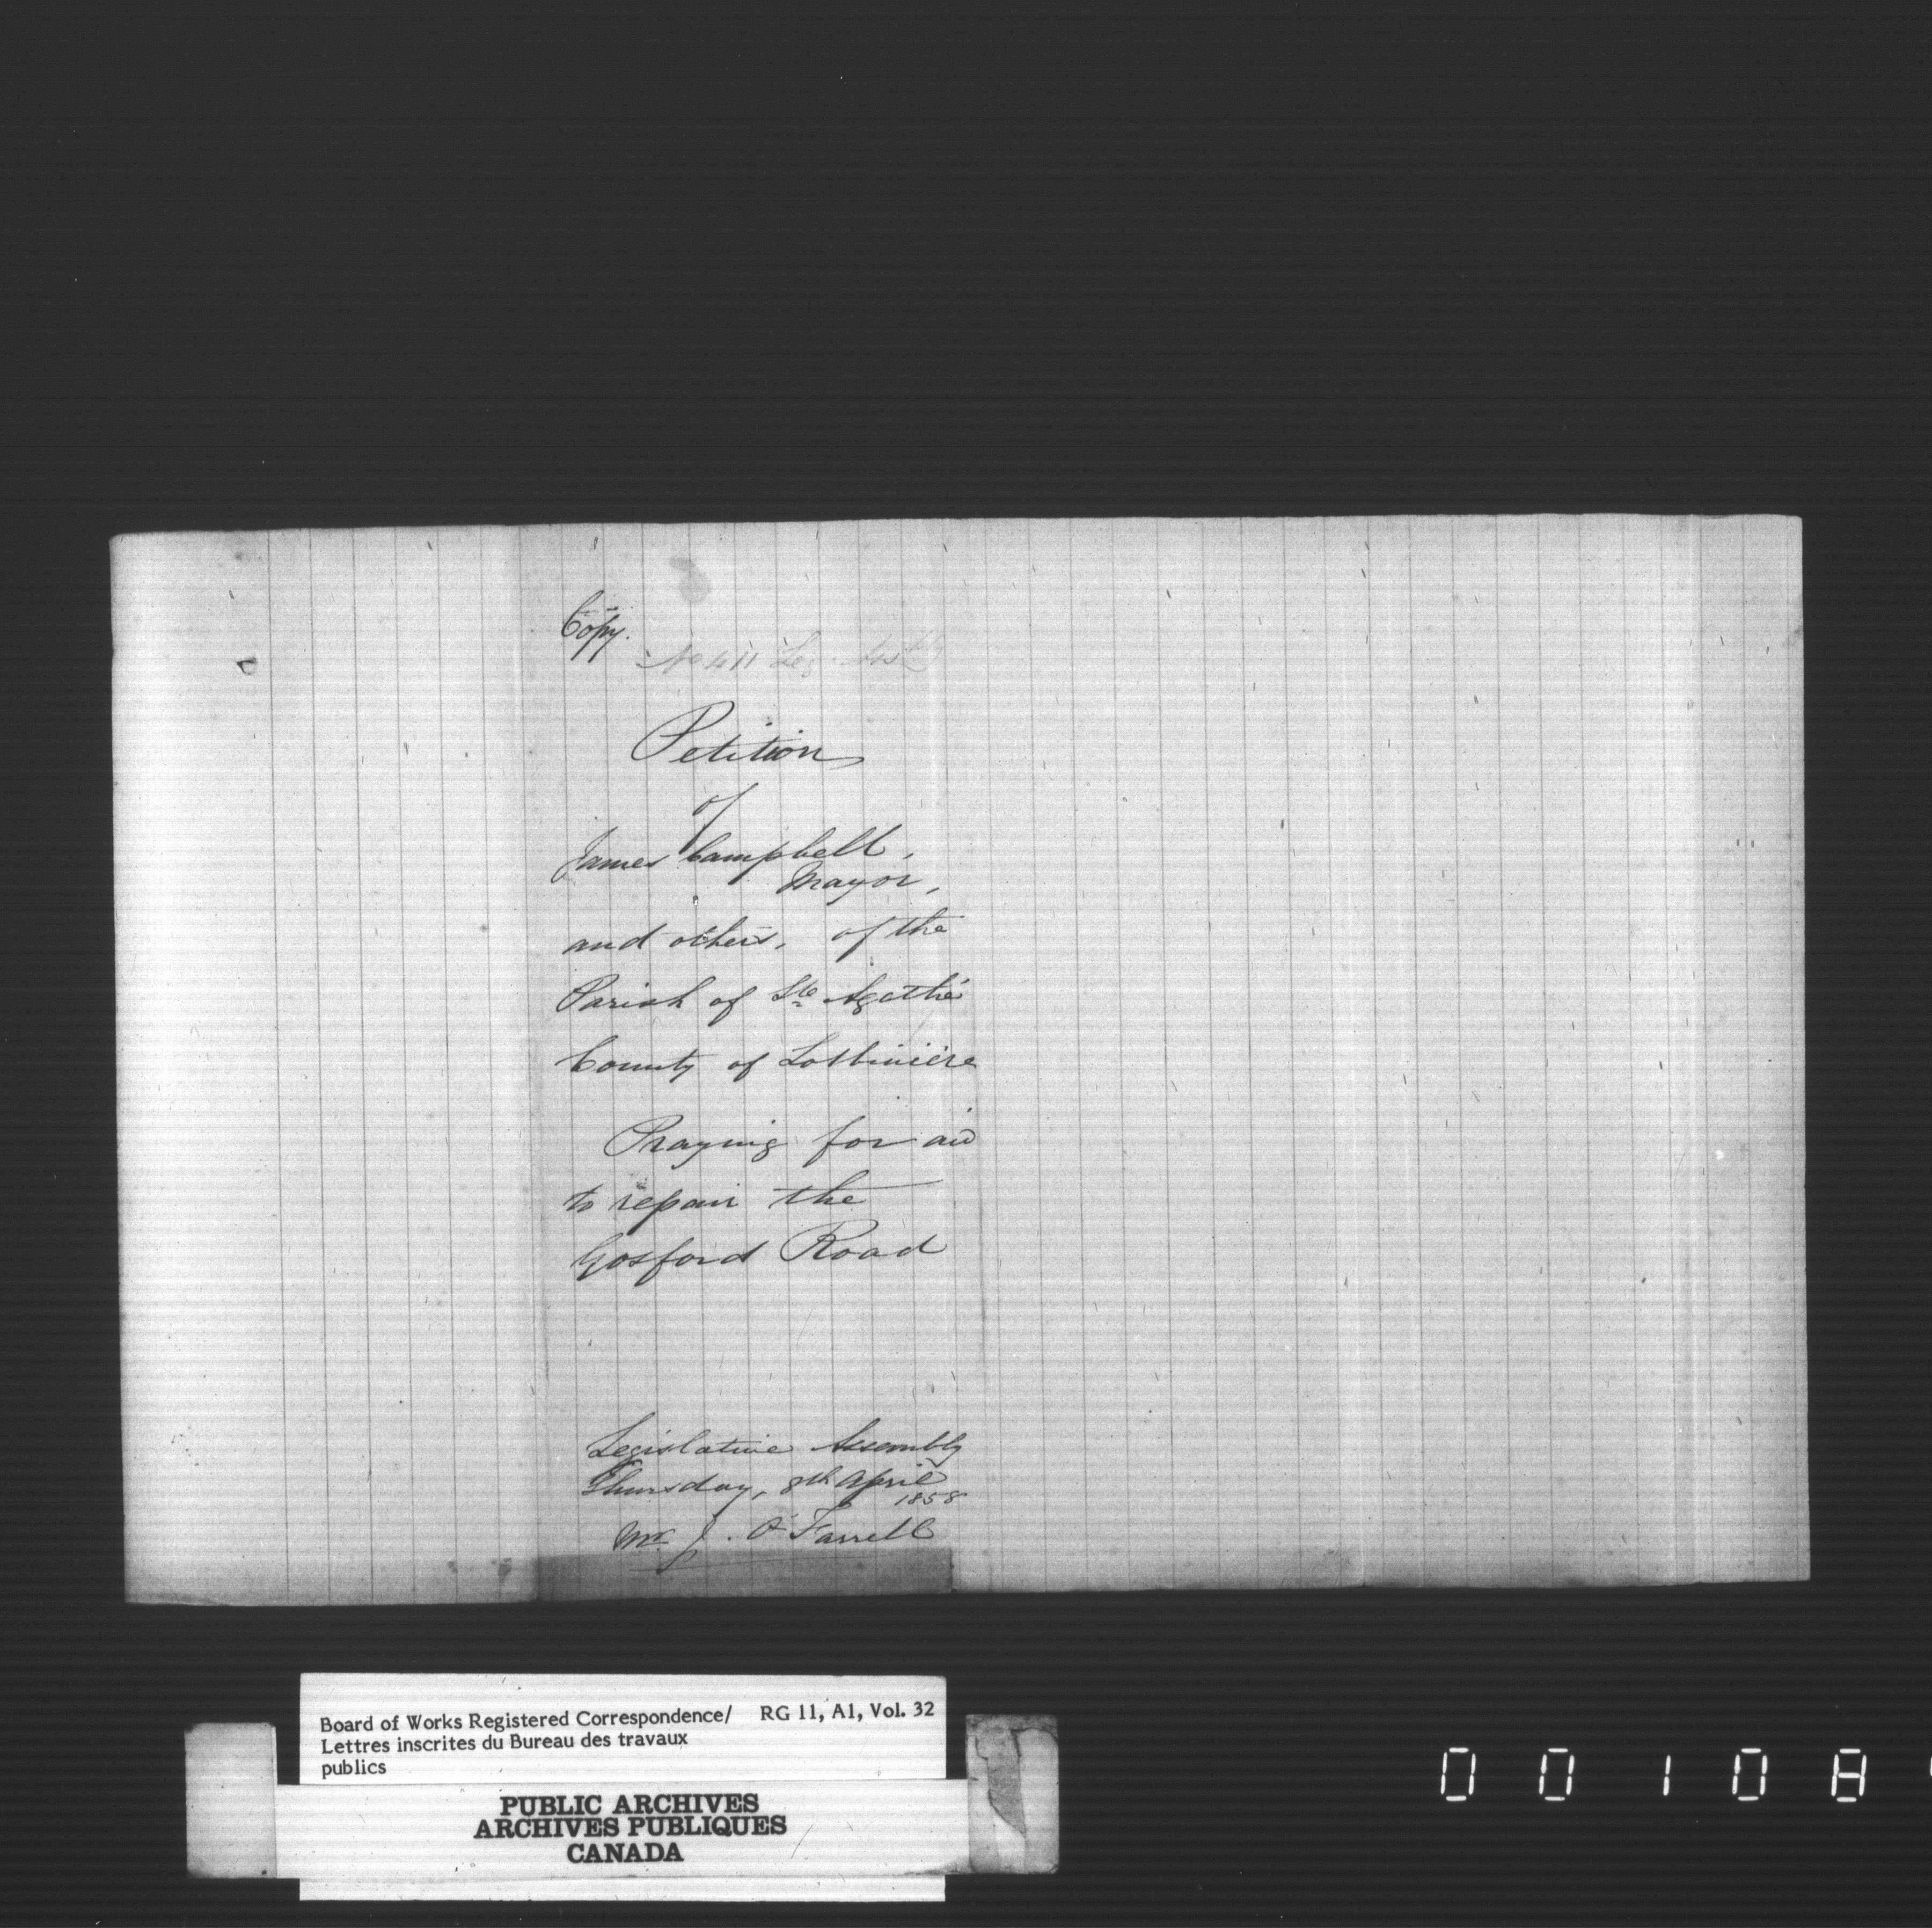 Copy.
No 411 Leg. Assly
Petition
of
James Campbell,
Mayor,
and others, of the
Parish of Ste Agathe
County of Lotbinière
Praying for aid
to repair the
Gosford Road
Legislative Assembly
Thursday, 8th April
1858
Mr. J. O'Farrell
Board of Works Registered Correspondence/ RG 11, A1, Vol. 32
Lettres inscrites du Bureau des travaux
publics
PUBLIC ARCHIVES
ARCHIVES PUBLIQUES
CANADA
0 0 1 0 8